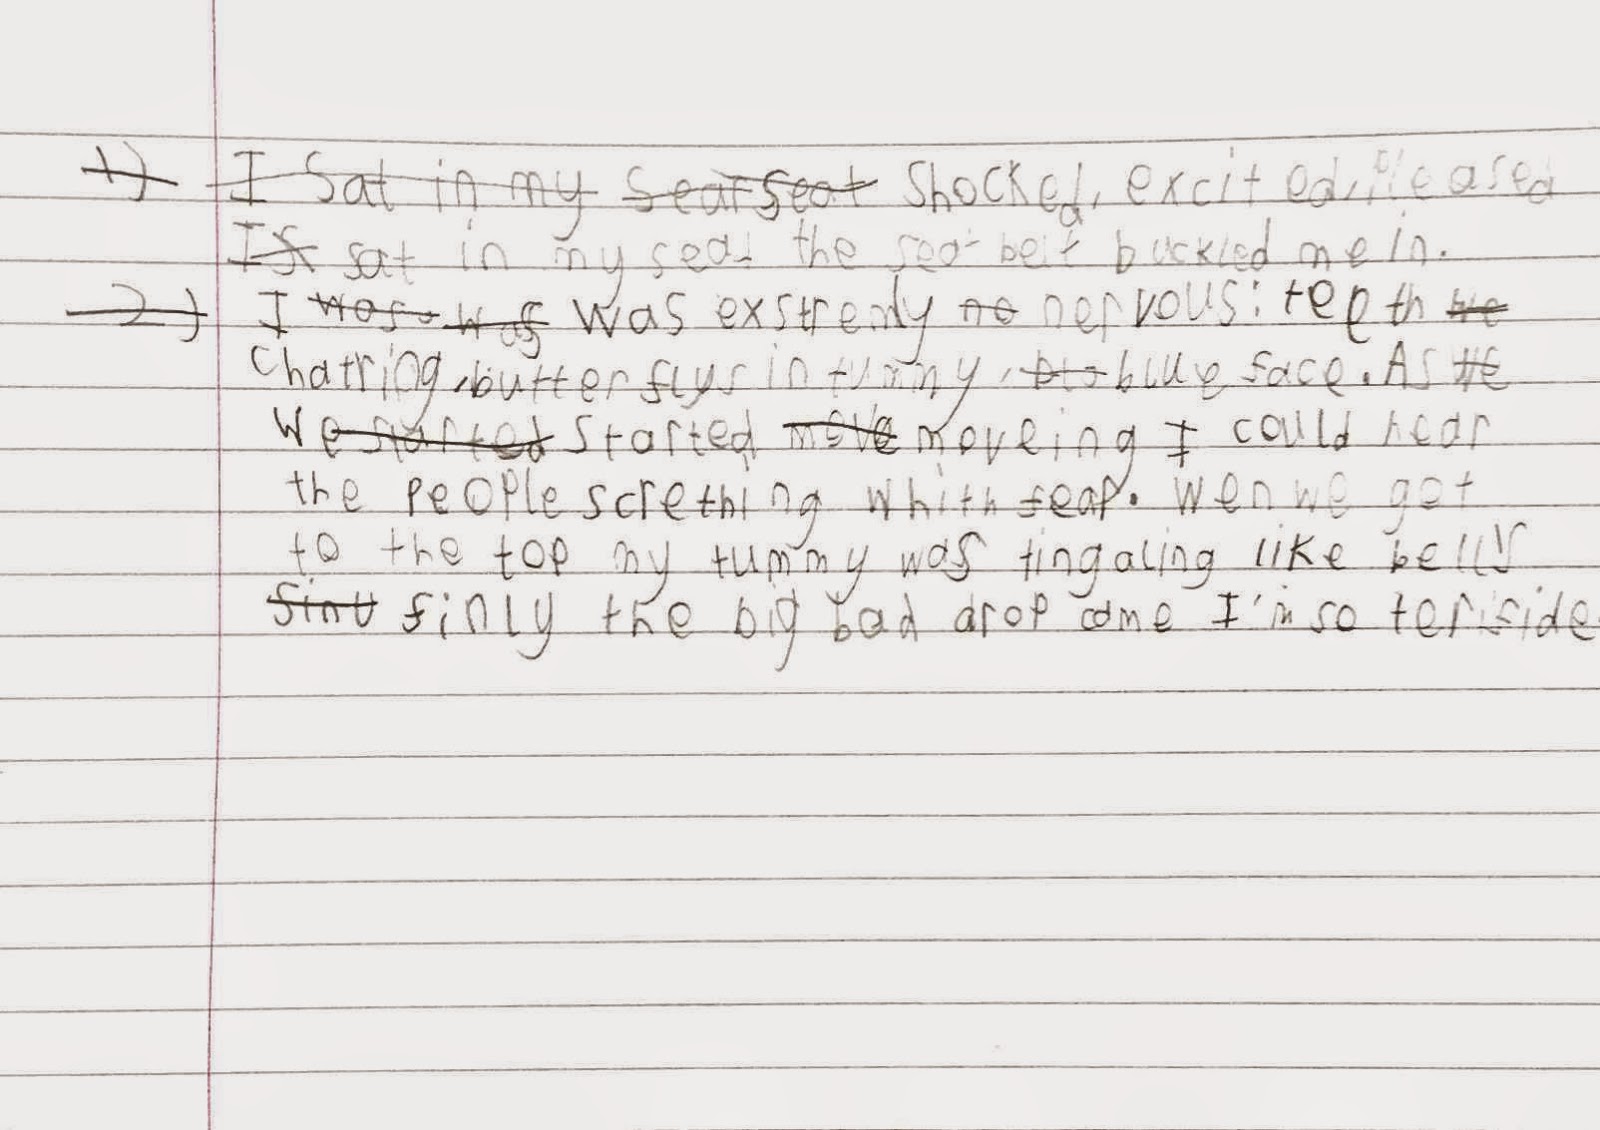 1) I Sat in my Sear Seat Shocked, excited, Pleased
IS sat in my seat the seat belt buckled me in.
2) I was was was exstremly ne nervous: teeth he
Chattring, butterflys in tummy, blo blue face. As the
We started started move moveing I could hear
the people scrething whith fear. Wen we got
to the top my tummy was tingaling like bells
finu finly the big bad drop come I'm so teriside